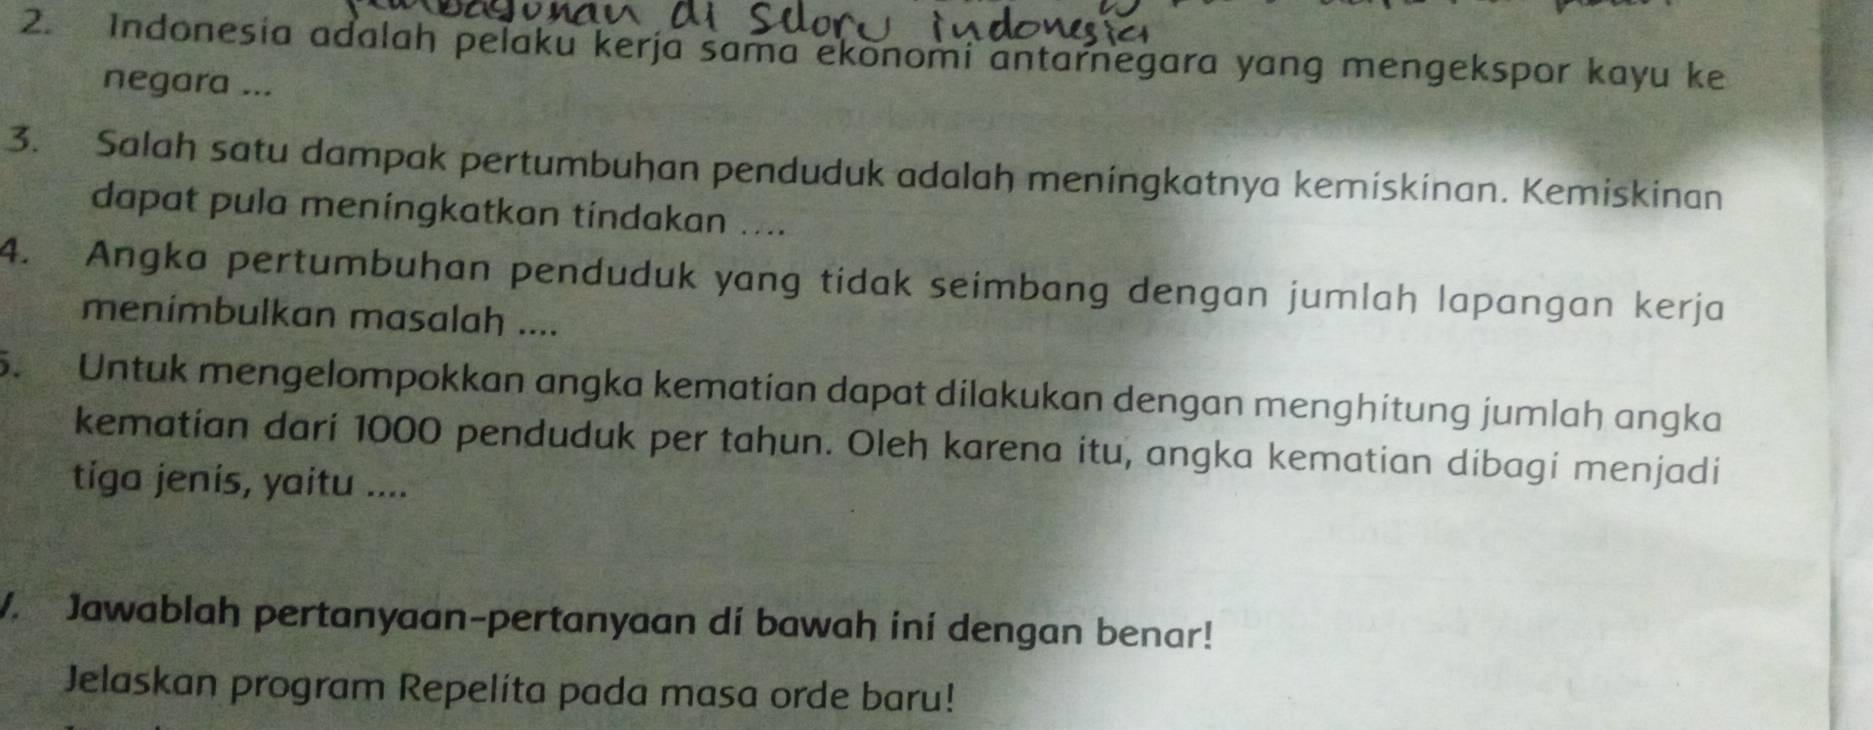 di seloru indonesia
2. Indonesia adalah pelaku kerja sama ekonomi antarnegara yang mengekspor kayu ke
negara ...
3. Salah satu dampak pertumbuhan penduduk adalah meningkatnya kemiskinan. Kemiskinan
dapat pula meningkatkan tindakan ....
4. Angka pertumbuhan penduduk yang tidak seimbang dengan jumlah lapangan kerja
menimbulkan masalah ....
5. Untuk mengelompokkan angka kematian dapat dilakukan dengan menghitung jumlah angka
kematian dari 1000 penduduk per tahun. Oleh karena itu, angka kematian dibagi menjadi
tiga jenis, yaitu ....
Jawablah pertanyaan-pertanyaan di bawah ini dengan benar!
Jelaskan program Repelita pada masa orde baru!